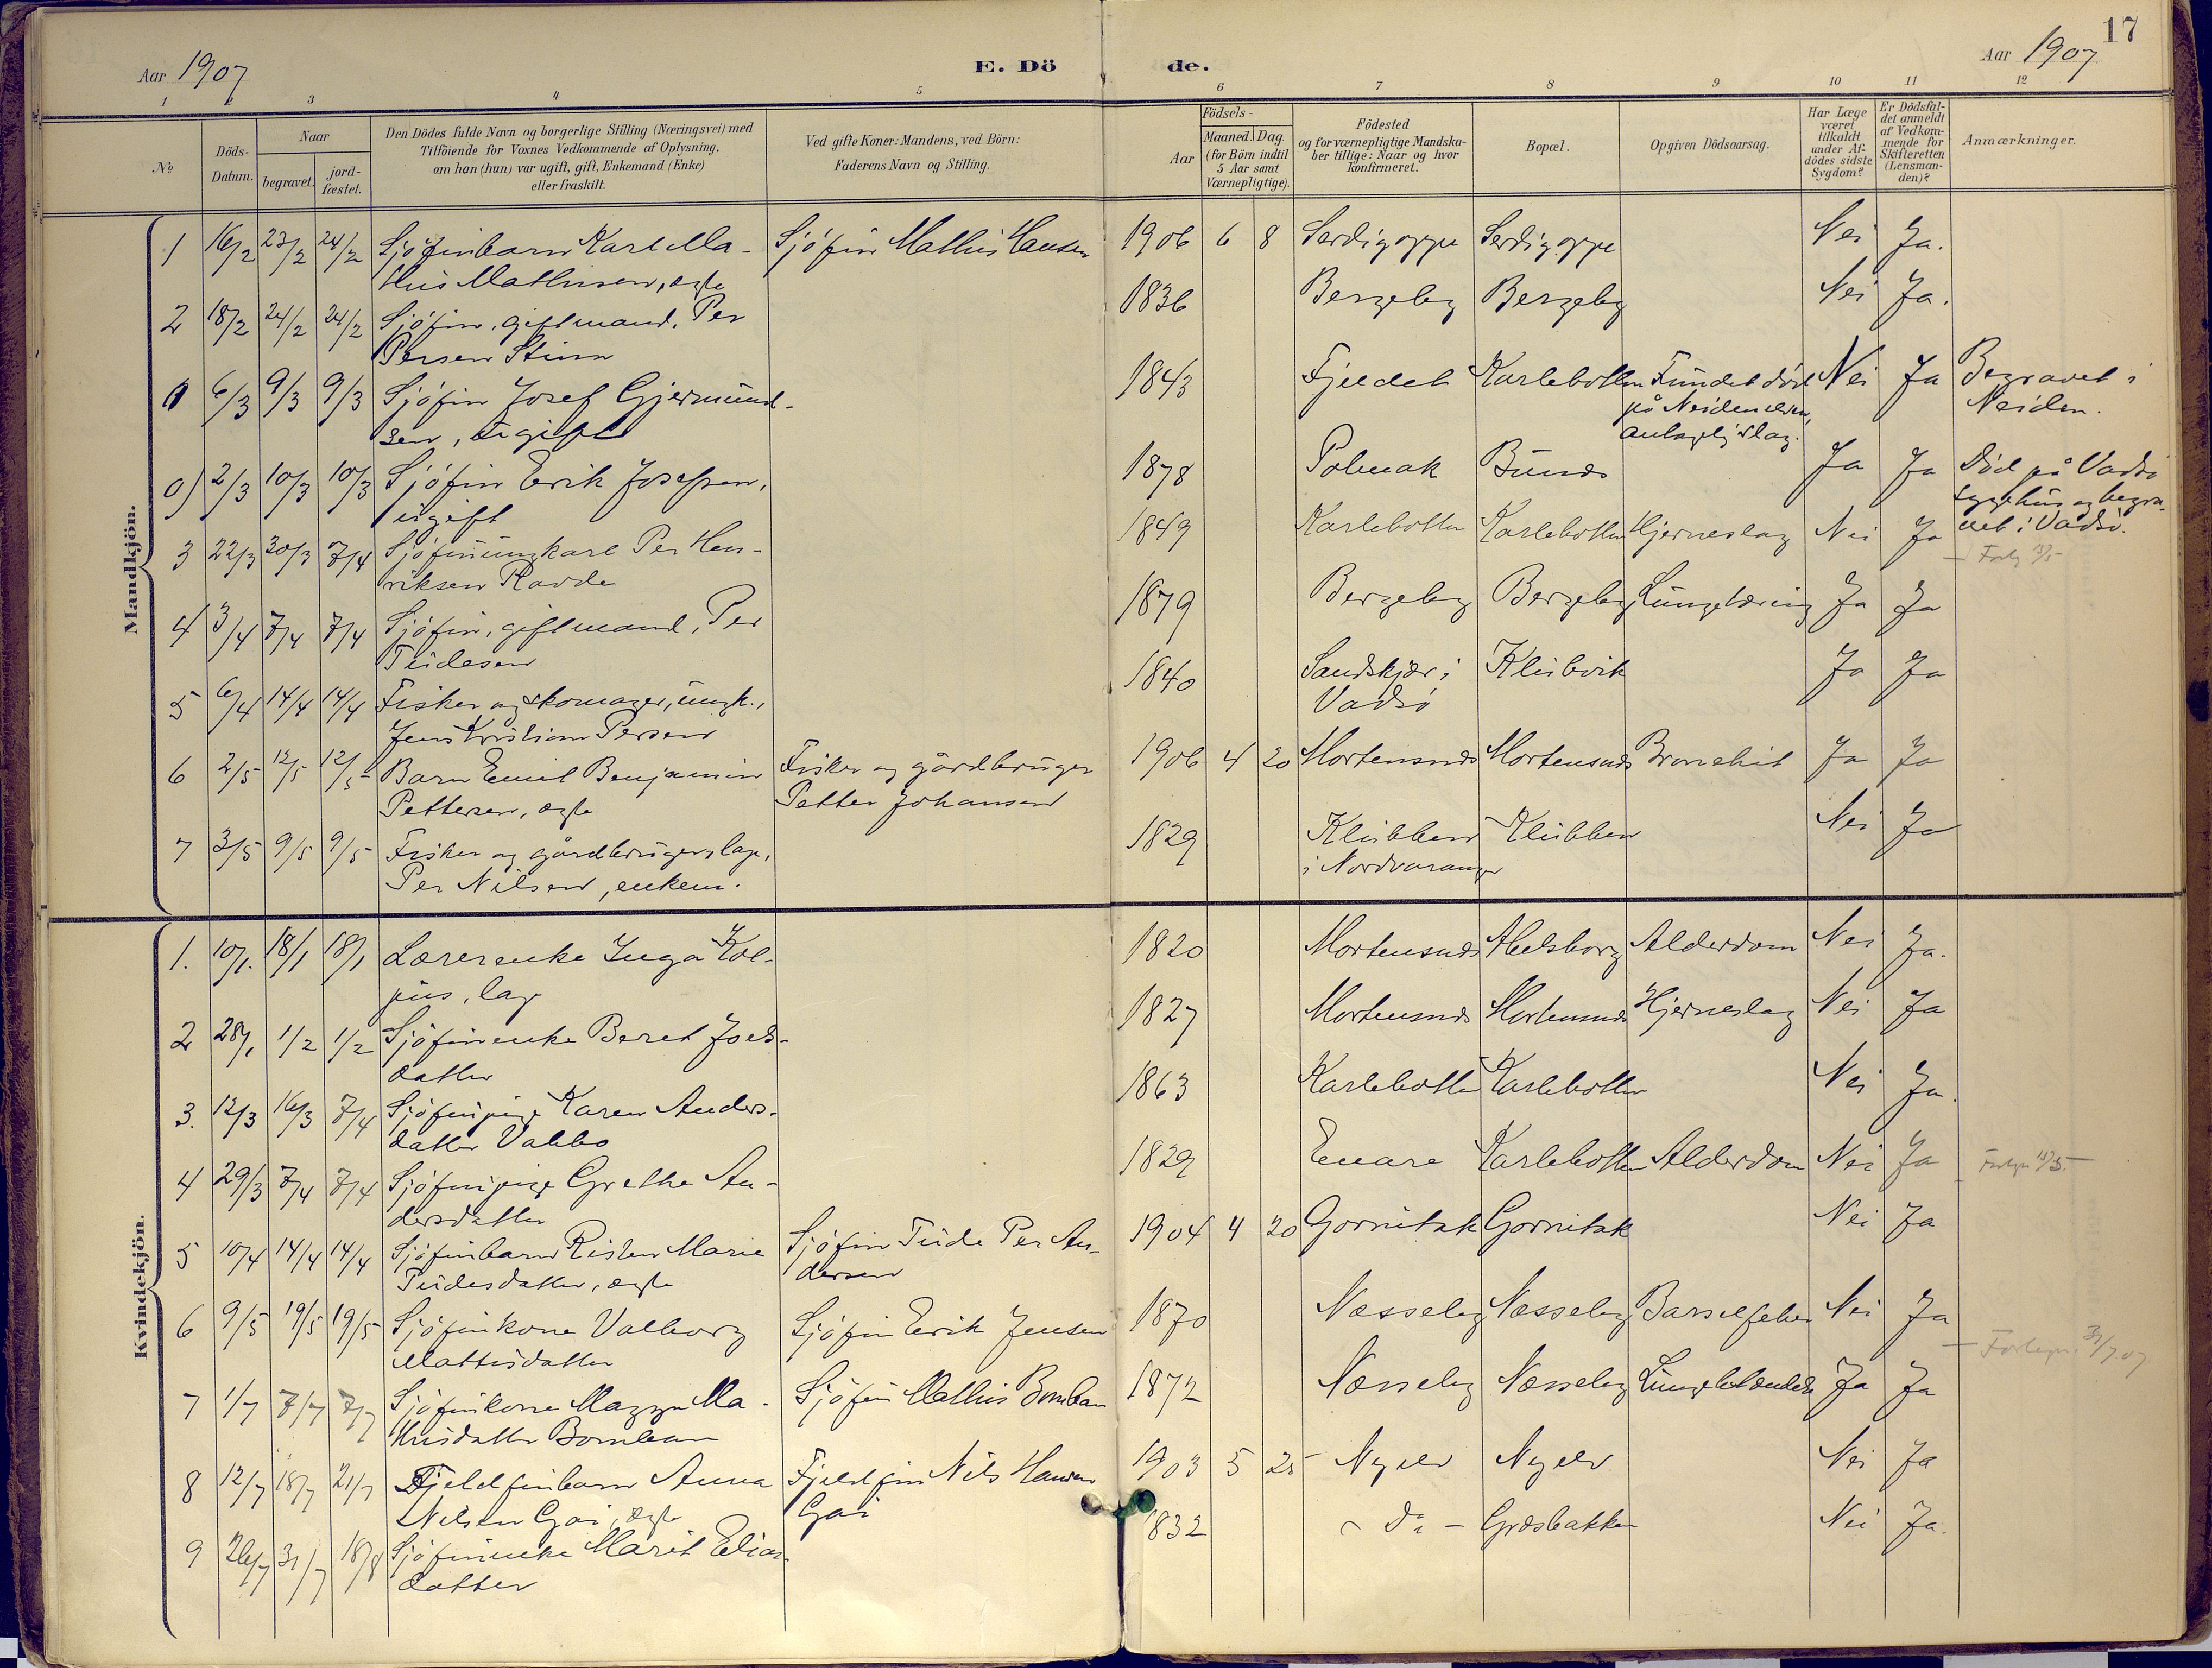 17
Aar 1907 E. Dö de. Aar 1907
1 2 3 4 5 6 7 8 9 10 11 12
No Döds-Datum. Naar begravet. jordfæstet. Den Dödes fulde Navn og borgerlige Stilling (Næringsvei) med Tilföiende for Voxnes Vedkommende af Oplysning, om han (hun) var ugift, gift, Enkemand (Enke) eller fraskilt. Ved gifte Koner: Mandens, ved Börn: Faderens Navn og Stilling. Aar Födsels- Maaned. Dag. (for Börn indtil 5 Aar samt Værnepligtige). Födested og for værnepligtige Mandskaber tillige: Naar og hvor konfirmeret. Bopæl. Opgiven Dödsaarsag. Har Læge været tilkaldt under Afdödes sidste Sygdom? Er Dödsfaldet anmeldt af Vedkommende for Skifteretten (Lensmanden)? Anmærkninger.
Mandkjön.
1 16/2 23/2 24/2 Sjöfinbarn Karl Ma- Sjöfin Mathis Hansen 1906 6 8 Serdigoppe Serdigoppe Nei Ja.
this Mathisen, ægte
2 18/2 24/2 24/2 Sjöfin, gift mand, Per 1836 Bergeby Bergeby Nei Ja.
Persen Stinn
0 6/3 9/3 9/3 Sjöfin Josef Gjermund- 1843 Fjeldet Karlebotten Fundet död Nei Ja Begravet i
sen, ugift på Neidenelven, Neiden.
antagelig slag.
0) 2/3 10/3 10/3 Sjöfin Erik Josefsen, 1878 Polmak Bunes Ja Ja Död på Vadsö
ugift sygehus og begra-
3 22/3 30/3 7/4 Sjöfinungkarl Per Hen- 1849 Karlebotten Karlebotten Hjerneslag Nei Ja vet i Vadsö.
riksen Ravde
4 3/4 7/4 7/4 Sjöfin, gift mand, Per 1879 Bergeby Bergeby Lungetæring Ja Ja
Tudesen
5 6/4 14/4 14/4 Fisker og skomager, ungk., 1840 Sandskjær i Klubvik Ja Ja
Jens Kristian Persen Vadsö
6 2/5 12/5 12/5 Barn Emil Benjamin Fisker og gårdbruger 1906 4 20 Mortensnæs Mortensnæs Bronchit Ja Ja
Pettersen, ægte Petter Johansen
7 3/5 9/5 9/5 Fisker og gårdbruger, lap, 1829 Klubben Klubben Nei Ja
Per Nilsen, enkem. i Nordvaranger
Kvindekjön.
1. 10/1. 18/1 18/1 Lærerenke Inga Kol- 1820 Mortensnæs Abelsborg Alderdom Nei Ja.
pus, lap
2 28/1 1/2 1/2 Sjöfinenke Beret Joels- 1827 Mortensnæs Mortensnæs Hjerneslag Nei Ja
datter
3. 12/3 16/3 7/4 Sjöfinpige Karen Anders- 1863 Karlebotten Karlebotten Nei Ja.
datter Vabbo
4 29/3 7/4 7/4 Sjöfinpige Grethe An- 1829 Enare Karlebotten Alderdom Nei Ja
dersdatter
5 10/4 14/4 14/4 Sjöfinbarn Risten Marie Sjöfin Tude Per An- 1904 4 20 Gornitak Gornitak Nei Ja
Tudesdatter, ægte dersen
6 9/5 19/5 19/5 Sjöfinkone Valborg Sjöfin Erik Jensen 1870 Nesseby Nesseby Barselfeber Nei Ja
Mattisdatter
7 1/7 7/7 7/7 Sjöfinkone Magga Ma- Sjöfin Mathis Bomban 1872 Nesseby Nesseby Lungebetændelse Ja Ja
thisdatter Bomban
8 12/7 18/7 21/7 Fjeldfinbarn Anna Fjeldfin Nils Hansen 1903 5 25 Nyelv Nyelv Nei Ja
Nilsen Gai, ægte Gai
9 26/7 31/7 18/8 Sjöfinenke Marit Elias- 1832 - Do - Græsbakken Nei Ja.
datter